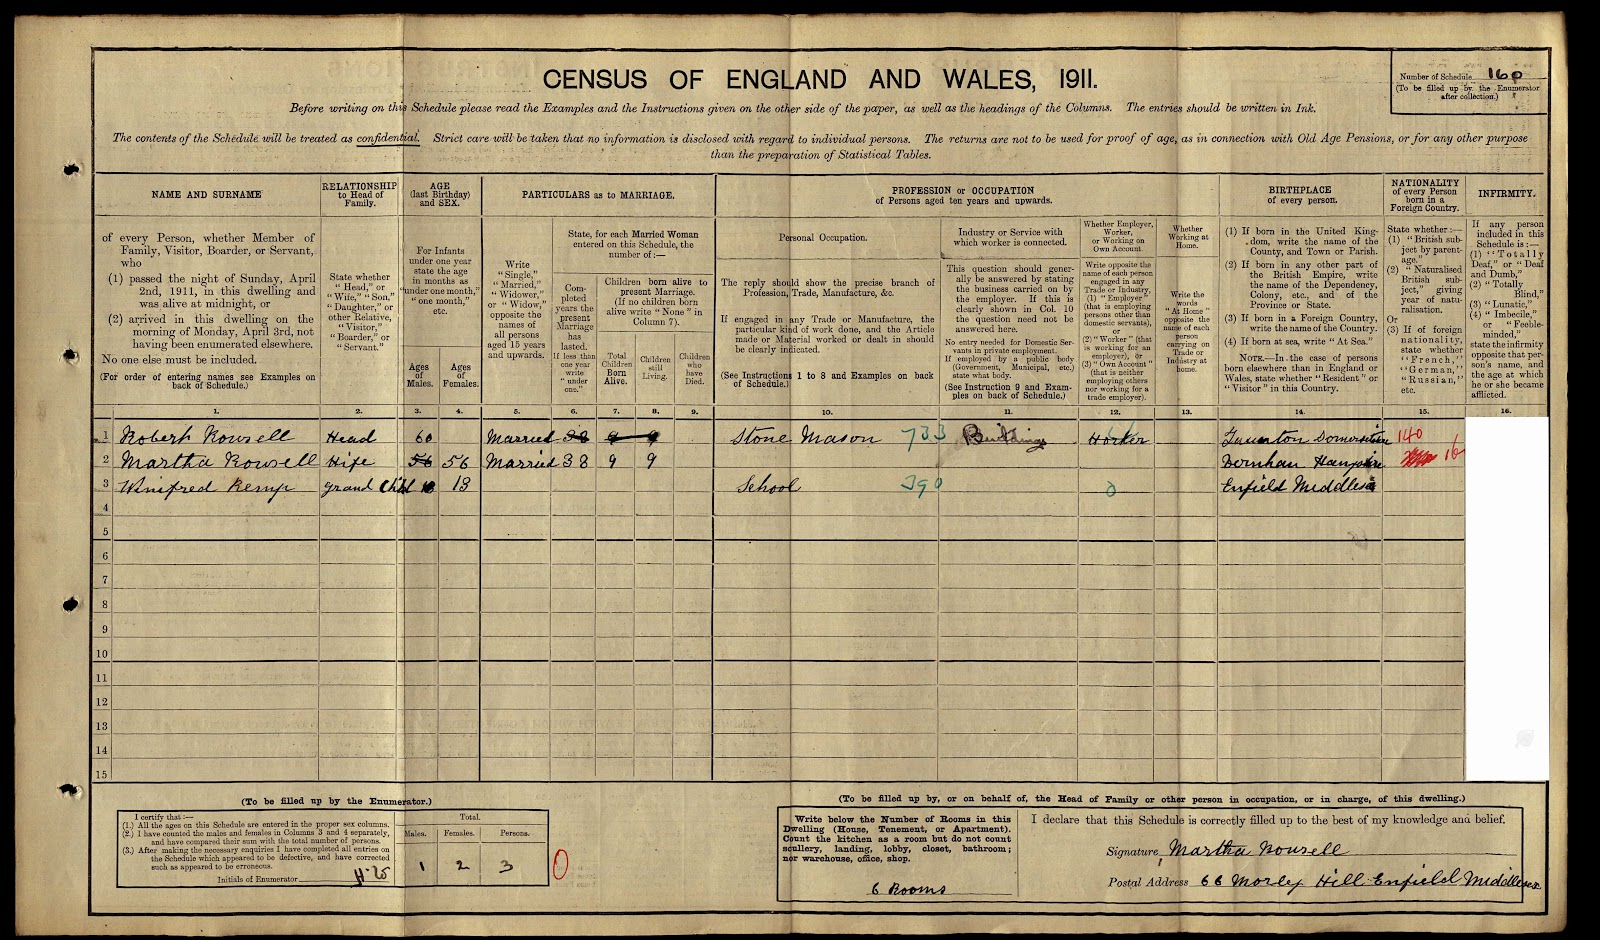 CENSUS OF ENGLAND AND WALES, 1911.
Number of Schedule 160
(To be filled up by the Enumerator
after collection.)
Before writing on this Schedule please read the Examples and the Instructions given on the other side of the paper, as well as the headings of the Columns. The entries should be written in Ink.
The contents of the Schedule will be treated as confidential. Strict care will be taken that no information is disclosed with regard to individual persons. The returns are not to be used for proof of age, as in connection with Old Age Pensions, or for any other purpose
than the preparation of Statistical Tables.
NAME AND SURNAME
of every Person, whether Member of
Family, Visitor, Boarder, or Servant,
who
(1) passed the night of Sunday, April
2nd, 1911, in this dwelling and
was alive at midnight, or
(2) arrived in this dwelling on the
morning of Monday, April 3rd, not
having been enumerated elsewhere.
No one else must be included.
(For order of entering names see Examples on
back of Schedule.)
RELATIONSHIP
to Head of
Family.
State whether
"Head," or
"Wife," "Son,"
"Daughter," or
other Relative,
"Visitor,"
"Boarder," or
"Servant."
AGE
(last Birthday)
and SEX.
For Infants
under one year
state the age
in months as
"under one month,"
"one month,"
etc.
Ages
of
Males.
Ages
of
Females.
PARTICULARS as to MARRIAGE.
Write
"Single,"
"Married,"
"Widower,"
or "Widow,"
opposite the
names of
all persons
aged 15 years
and upwards.
State, for each Married Woman
entered on this Schedule, the
number of:—
Com-
pleted
years the
present
Marriage
has
lasted.
If less than
one year
write
"under
one."
Children born alive to
present Marriage.
(If no children born
alive write "None" in
Column 7).
Total
Children
Born
Alive.
Children
still
Living.
Children
who
have
Died.
PROFESSION or OCCUPATION
of Persons aged ten years and upwards.
Personal Occupation.
The reply should show the precise branch of
Profession, Trade, Manufacture, &c.
If engaged in any Trade or Manufacture, the
particular kind of work done, and the Article
made or Material worked or dealt in should
be clearly indicated.
(See Instructions 1 to 8 and Examples on back
of Schedule.)
Industry or Service with
which worker is connected.
This question should gener-
ally be answered by stating
the business carried on by
the employer. If this is
clearly shown in Col. 10
the question need not be
answered here.
No entry needed for Domestic Ser-
vants in private employment.
If employed by a public body
(Government, Municipal, etc.)
state what body.
(See Instruction 9 and Exam-
ples on back of Schedule.)
Whether Employer,
Worker,
or Working on
Own Account.
Write opposite the
name of each person
engaged in any
Trade or Industry,
(1) "Employer"
(that is employing
persons other than
domestic servants),
or
(2) "Worker" (that
is working for an
employer), or
(3) "Own Account"
(that is neither
employing others
nor working for a
trade employer).
Whether
Working at
Home.
Write the
words
"At Home"
opposite the
name of each
person
carrying on
Trade or
Industry at
home.
BIRTHPLACE
of every person.
(1) If born in the United King-
dom, write the name of the
County, and Town or Parish.
(2) If born in any other part of
the British Empire, write
the name of the Dependency,
Colony, etc., and of the
Province or State.
(3) If born in a Foreign Country,
write the name of the Country.
(4) If born at sea, write "At Sea."
NOTE.—In the case of persons
born elsewhere than in England or
Wales, state whether "Resident" or
"Visitor" in this Country.
NATIONALITY
of every Person
born in a
Foreign Country.
State whether:—
(1) "British sub-
ject by parent-
age."
(2) "Naturalised
British sub-
ject," giving
year of natu-
ralisation.
Or
(3) If of foreign
nationality,
state whether
"French,"
"German,"
"Russian,"
etc.
INFIRMITY.
If any person
included in this
Schedule is:—
(1) "Totally
Deaf," or "Deaf
and Dumb,"
(2) "Totally
Blind,"
(3) "Lunatic,"
(4) "Imbecile,"
or "Feeble-
minded,"
state the infirmity
opposite that per-
son's name, and
the age at which
he or she became
afflicted.
1. 2. 3. 4. 5. 6. 7. 8. 9. 10. 11. 12. 13. 14. 15. 16.
1 Robert Rowsell Head 60 Married 38 9 9 Stone Mason 733 Buildings Worker Taunton Somersetshire 140
2 Martha Rowsell Wife 56 56 Married 38 9 9 Hampshire 16
3 Winifred Kemp grand Child 13 School 390 0 Enfield Middlesex
4
5
6
7
8
9
10
11
12
13
14
15
(To be filled up by the Enumerator.)
I certify that:—
(1.) All the ages on this Schedule are entered in the proper sex columns.
(2.) I have counted the males and females in Columns 3 and 4 separately,
and have compared their sum with the total number of persons.
(3.) After making the necessary enquiries I have completed all entries on
the Schedule which appeared to be defective, and have corrected
such as appeared to be erroneous.
Initials of Enumerator
Total.
Males. Females. Persons.
1 2 3
0
(To be filled up by, or on behalf of, the Head of Family or other person in occupation, or in charge, of this dwelling.)
Write below the Number of Rooms in this
Dwelling (House, Tenement, or Apartment).
Count the kitchen as a room but do not count
scullery, landing, lobby, closet, bathroom;
nor warehouse, office, shop.
6 Rooms
I declare that this Schedule is correctly filled up to the best of my knowledge and belief.
Signature Martha Rowsell
Postal Address 66 Morley Hill Enfield Middlesex